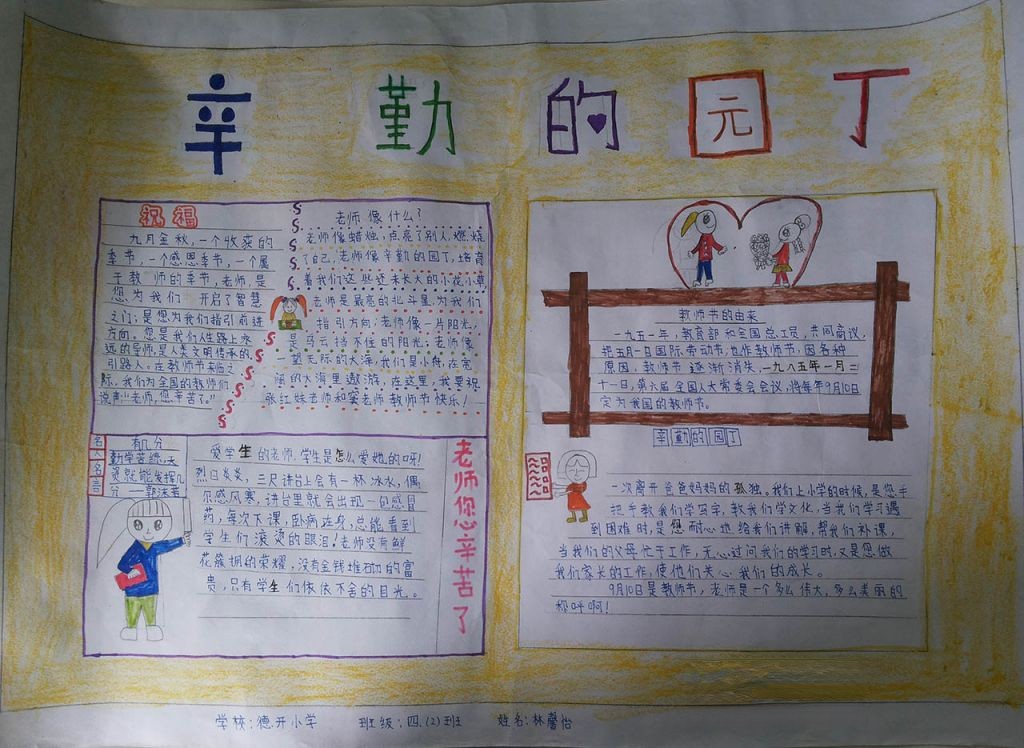 辛勤的园丁
祝福
九月金秋,一个收获的
季节,一个感恩季节,一个属
于教师的季节,老师,是
您为我们开启了智慧
之门;是您为我们指引前进
方向。您是我们人生路上永
远的导师,是人类文明传承的
引路人。在教师节来临之
际,我们为全国的教师们
说声“老师,您辛苦了。”
老师像什么?
老师像蜡烛,点亮了别人,燃烧
了自己,老师像辛勤的园丁,培育
着我们这些还未长大的小花小草,
老师是最亮的北斗星,为我们
指引方向;老师像一片阳光,
是乌云挡不住的阳光;老师像
一望无际的大海,我们是小舟,在宽
阔的大海里遨游,在这里,我要祝
张红妹老师和窦老师教师节快乐!
名人名言
有几分
勤学苦练,天
资就能发挥几
分——郭沫若
爱学生的老师,学生是怎么爱她的呀!
烈日炎炎,三尺讲台上会有一杯冰水,偶
尔感风寒,讲台里就会出现一包感冒
药,每次下课,卧病在身,总能看到
学生们滚烫的眼泪!老师没有鲜
花簇拥的荣耀,没有金钱堆砌的富
贵,只有学生们依依不舍的目光。
老师你辛苦了
教师节的由来
一九五一年,教育部和全国总工员,共同商议,
把五月一日国际劳动节,也作教师节,因各种
原因,教师节逐渐消失,一九八五年一月二
十一日,第六届全国人大常委会会议,将每年9月10日
定为我国的教师节。
辛勤的园丁
一次离开爸爸妈妈的孤独。我们上小学的时候,是您手
把手教我们学写字,教我们学文化,当我们学习遇
到困难时,是您耐心地给我们讲解,帮我们补课,
当我们的父母忙于工作,无心过问我们的学习时,又是您做
我们家长的工作,使他们关心我们的成长。
9月10日是教师节,老师是一个多么伟大,多么美丽的
称呼啊!
学校:德开小学 班级:四.(2)班 姓名:林馨怡